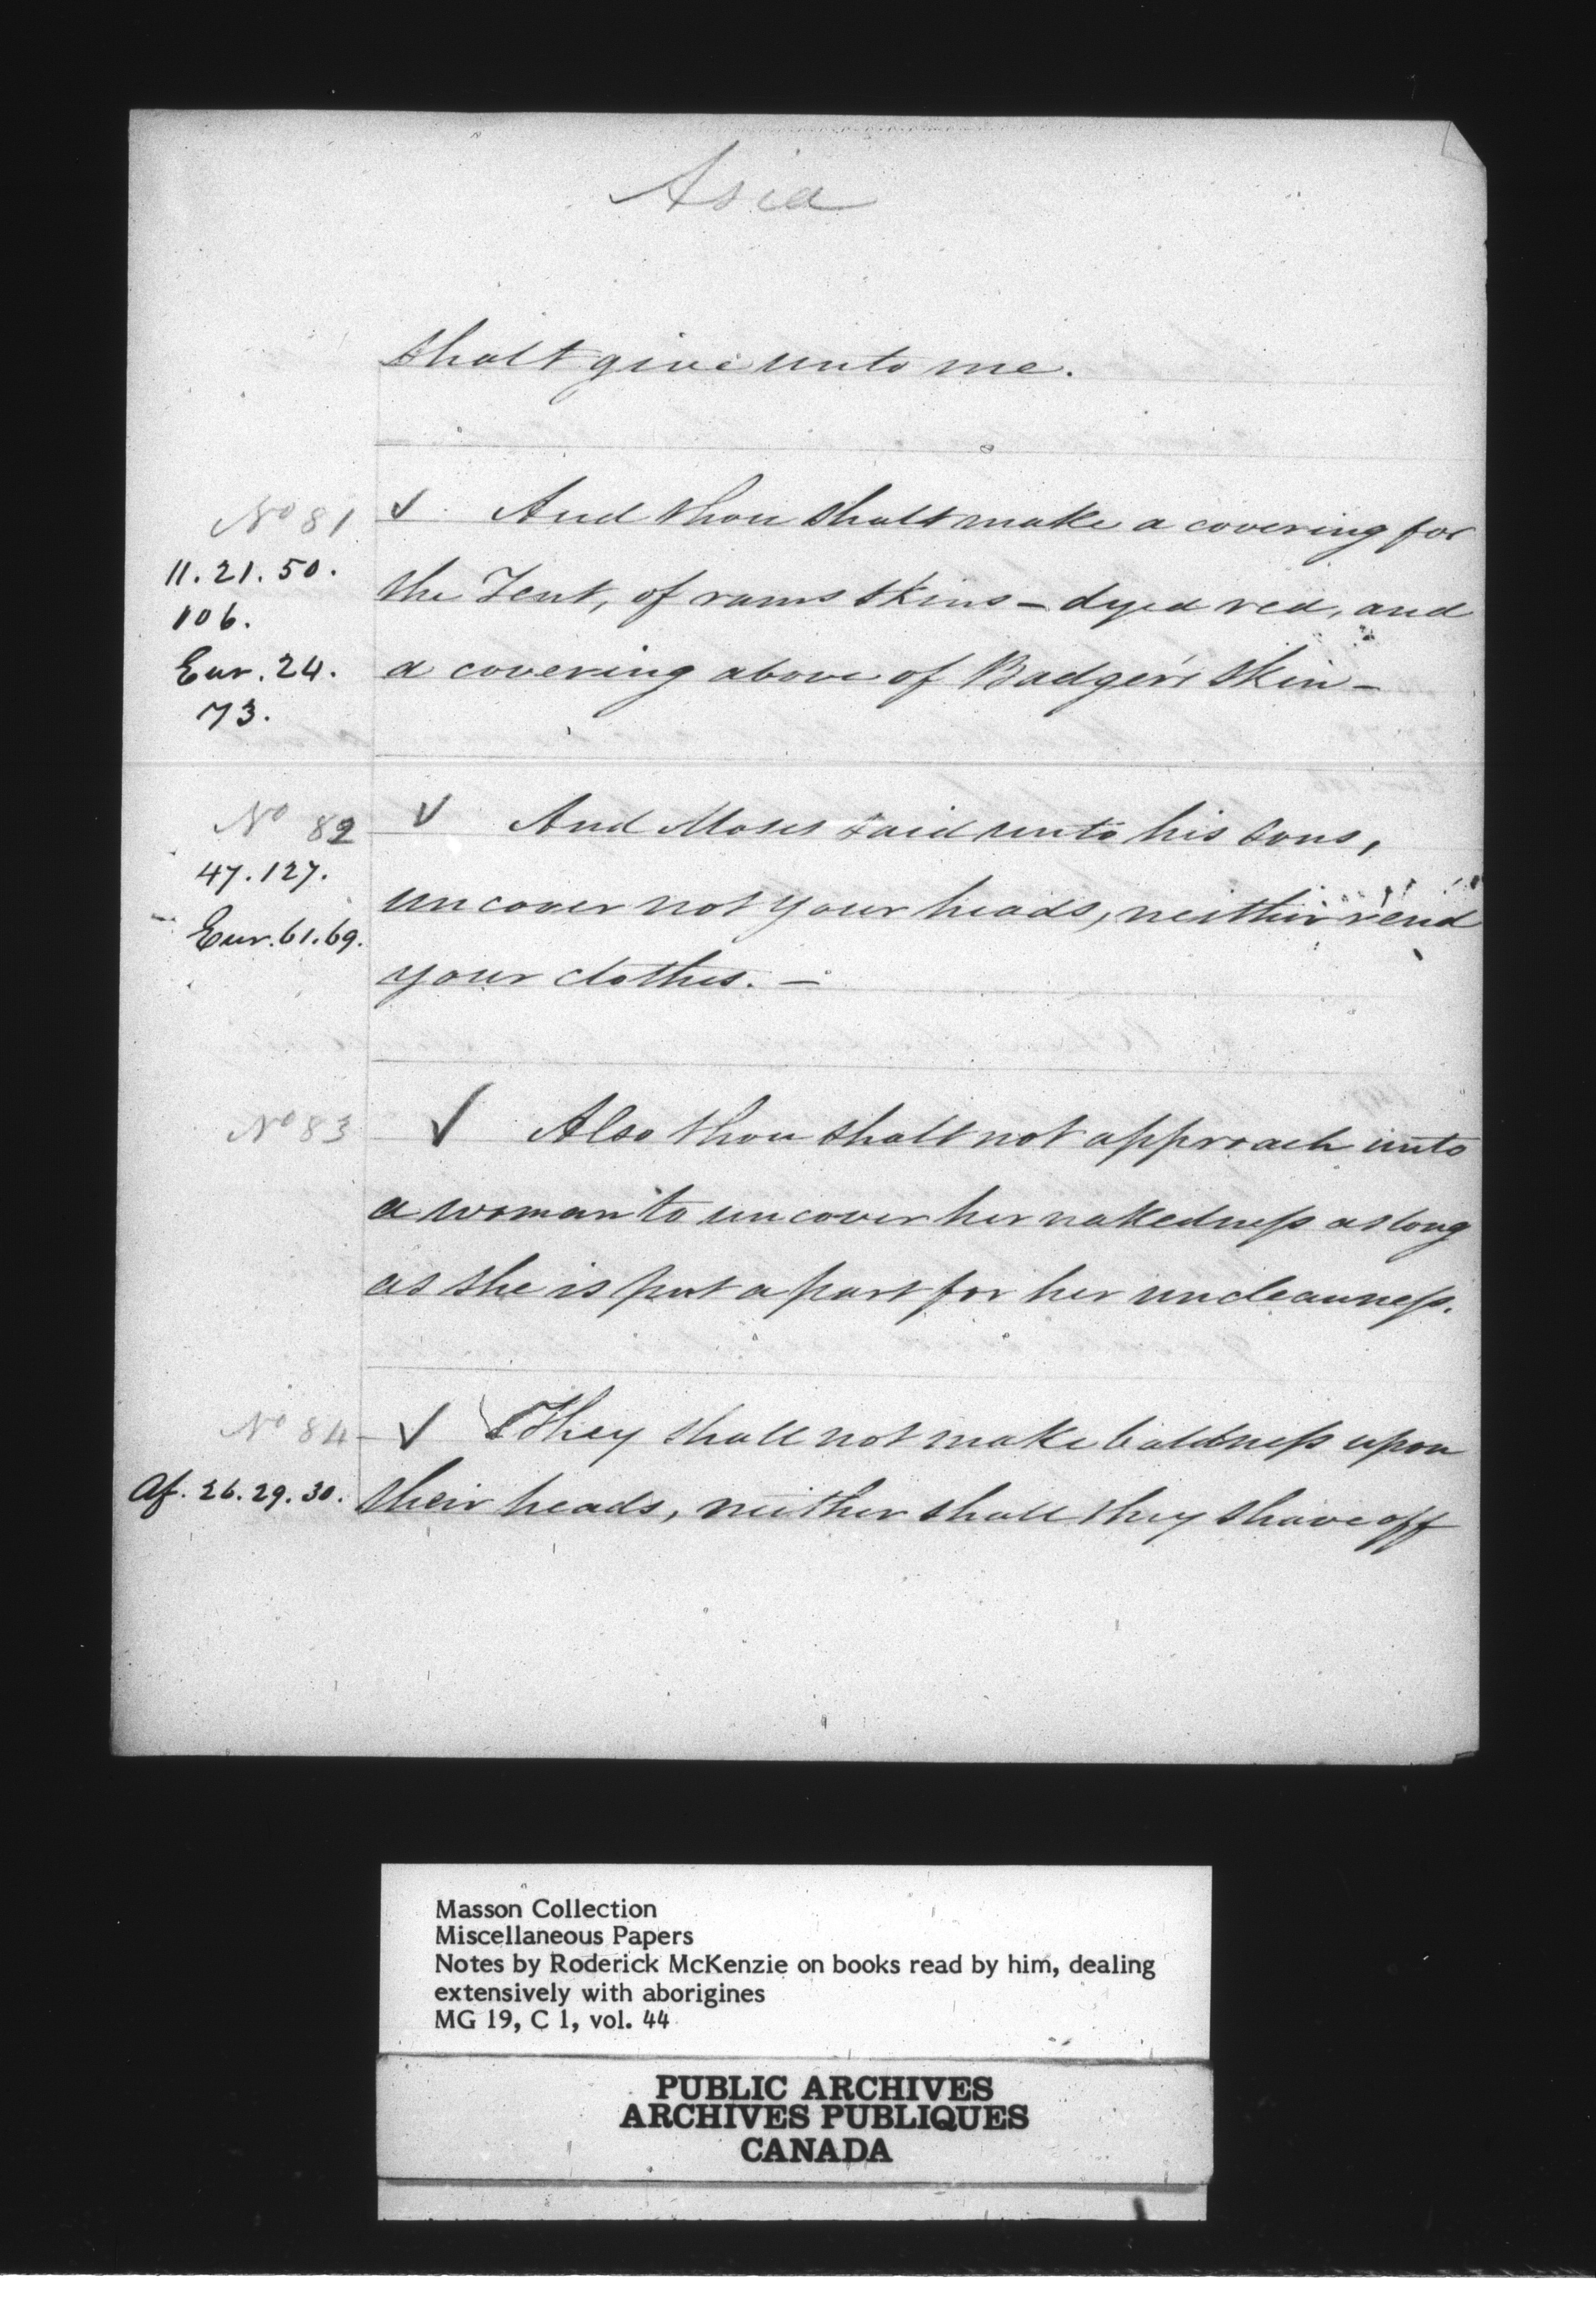 Asia
shalt give unto me.
No 81 ✓ And thou shalt make a covering for
11. 21. 50. the Tent, of rams skins - dyed red, and
106.
Eur. 24. a covering above of Badger's skin -
73.
No 82 ✓ And Moses said unto his sons,
47. 127. uncover not your heads, neither rend
Eur. 61. 69. your clothes. -
No 83 ✓ Also thou shalt not approach unto
a woman to uncover her nakedness as long
as she is put apart for her uncleanness.
No 84 ✓ They shall not make baldness upon
Af. 26. 29. 30. their heads, neither shall they shave off
Masson Collection
Miscellaneous Papers
Notes by Roderick McKenzie on books read by him, dealing
extensively with aborigines
MG 19, C 1, vol. 44
PUBLIC ARCHIVES
ARCHIVES PUBLIQUES
CANADA